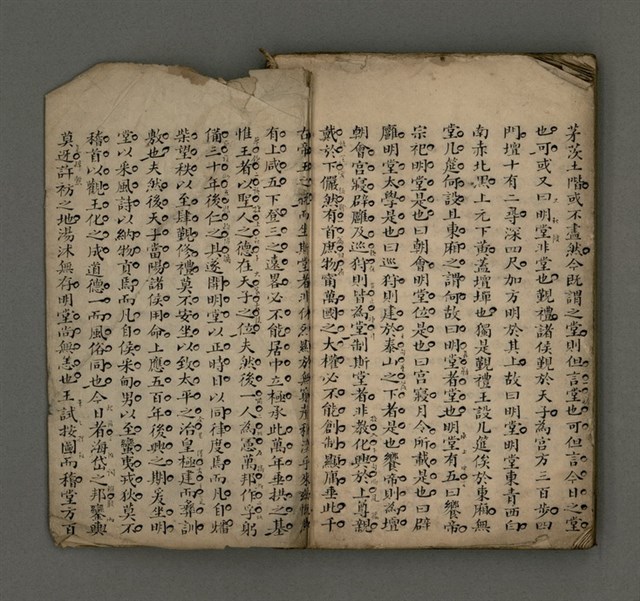 茅茨土階或不盡然今既謂之堂則但言堂也可但言今日之堂
也可或又曰明堂非堂也覲禮諸侯覲於天子為宮方三百步四
門壇十有二尋深四尺加方明於其上故曰明堂明堂東青西白
南赤北黑上元下黃盖壇墠也獨是覲禮王設几筵俟於東廂無
堂几筵何設且東廂之謂何故曰明堂者堂也明堂有五曰饗帝
宗祀明堂是也曰朝會明堂位是也曰宮寢月令所載是也曰辟
廱明堂太學是也曰巡狩則建於泰山之下者是也饗帝則為壇
朝會宮寢辟廱及巡狩則皆為堂制斯堂者非敎化興於上尊親
戴於下儼然有首庶物甯萬國之大權必不能創制顯庸垂此千
古帝王之
有上咸五下登三之遠畧必不能居中立極承此萬年垂拱之基
惟王者以聖人之德在天子之位夫然後一人為憲萬邦作孚躬
備三十年後仁之具遂開明堂以正時日以同律度焉而凡自燔
柴望秩以至肆覲修禮莫不安坐以致太平之治皇極建而彝訓
敷也夫然後天子當陽諸侯用命上應五百年後興之期美坐明
堂以釆風詩以納物賈焉而凡自侯釆甸男以至蠻夷戎狄莫不
稽首以觀王化之成道德一而風俗同也今日者海岱之邦鑾輿
莫迓許祊之地湯沐無存明堂尚無恙也王試按圖而稽堂方百